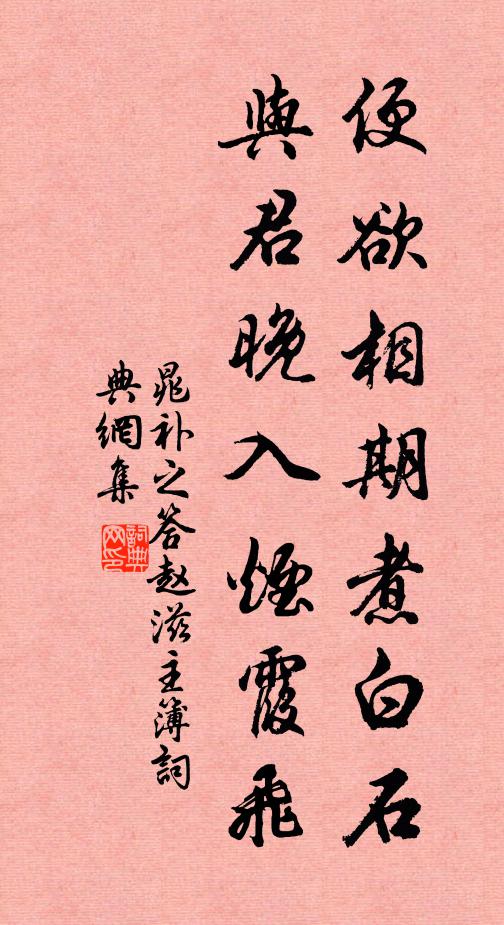 便欲相期煮白石
與君晚入煙霞飛
晁补之答赵滋主簿詞
典網集
詞典网印